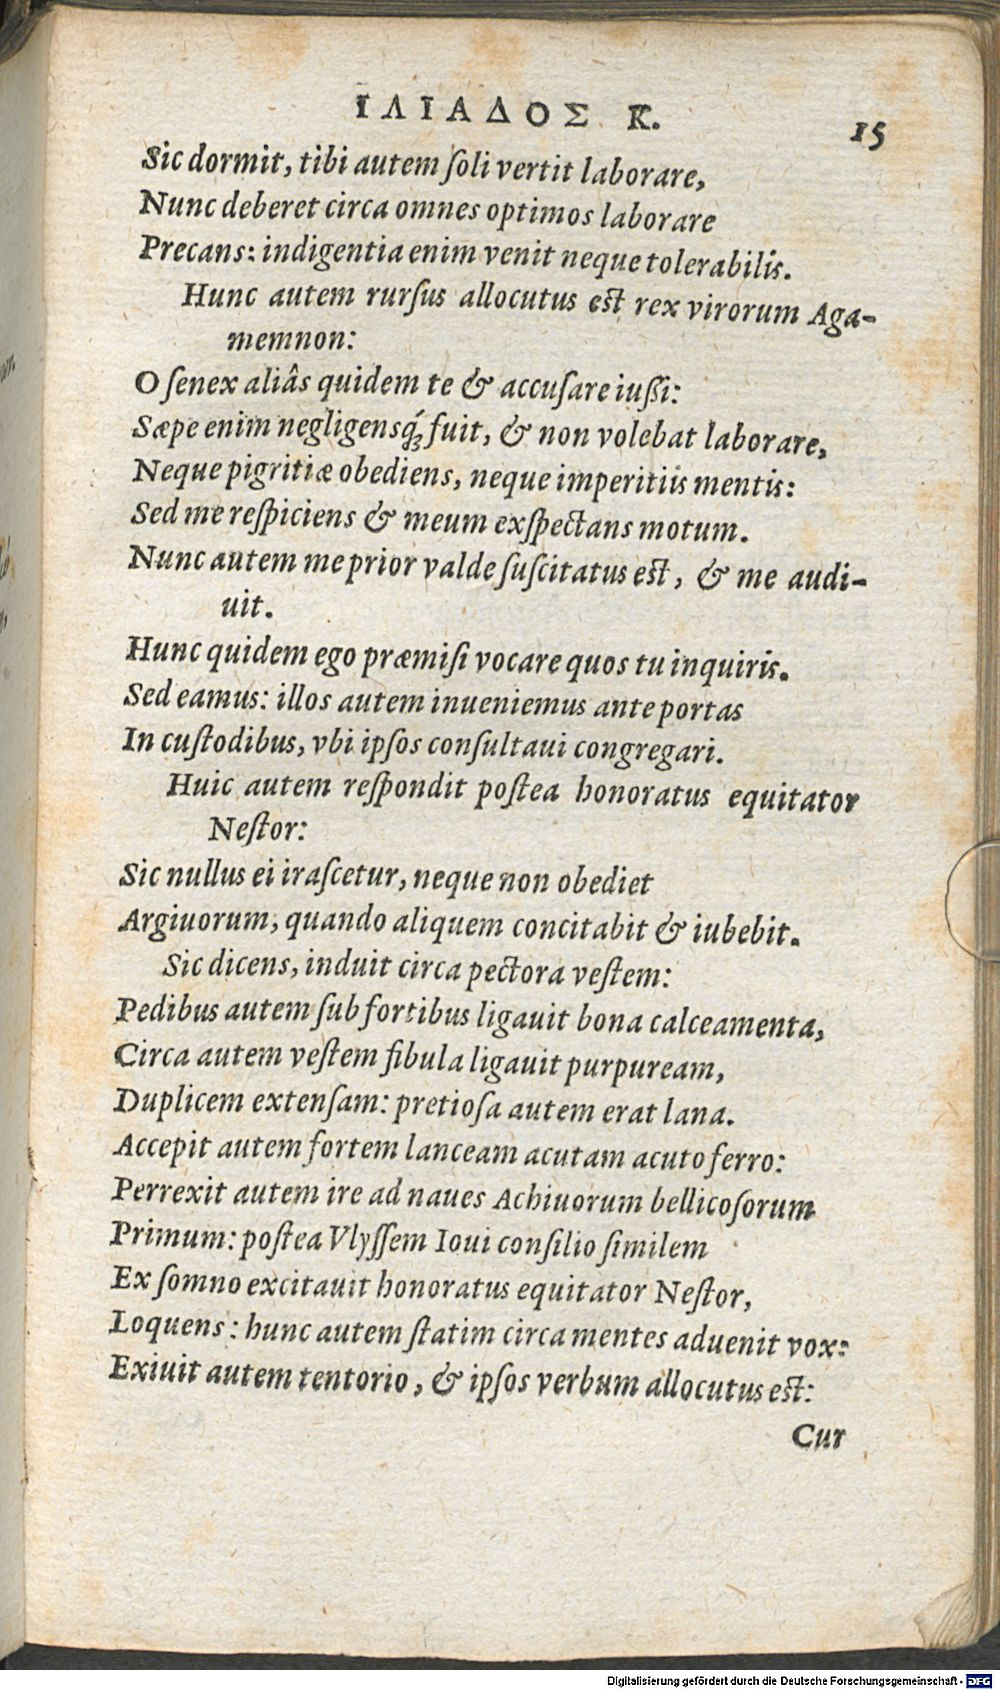 ΙΛΙΑΔΟΣ Κ.
15
Sic dormit, tibi autem ſoli vertit laborare,
Nunc deberet circa omnes optimos laborare
Precans: indigentia enim venit neque tolerabilis.
Hunc autem rurſus allocutus est rex virorum Aga-
memnon:
O ſenex aliâs quidem te & accuſare iuſſi:
Sæpe enim negligensq́; fuit, & non volebat laborare,
Neque pigritiæ obediens, neque imperitiis mentis:
Sed me reſpiciens & meum exſpectans motum.
Nunc autem me prior valde ſuſcitatus est, & me audi-
uit.
Hunc quidem ego præmiſi vocare quos tu inquiris.
Sed eamus: illos autem inueniemus ante portas
In cuſtodibus, vbi ipſos conſultaui congregari.
Huic autem reſpondit poſtea honoratus equitator
Neſtor:
Sic nullus ei iraſcetur, neque non obediet
Argiuorum, quando aliquem concitabit & iubebit.
Sic dicens, induit circa pectora veſtem:
Pedibus autem ſub fortibus ligauit bona calceamenta,
Circa autem veſtem fibula ligauit purpuream,
Duplicem extenſam: pretioſa autem erat lana.
Accepit autem fortem lanceam acutam acuto ferro:
Perrexit autem ire ad naues Achiuorum bellicoſorum
Primum: poſtea Vlyſſem Ioui conſilio ſimilem
Ex ſomno excitauit honoratus equitator Neſtor,
Loquens: hunc autem ſtatim circa mentes aduenit vox:
Exiuit autem tentorio, & ipſos verbum allocutus est:
Cur
Digitalisierung gefördert durch die Deutsche Forschungsgemeinschaft - DFG